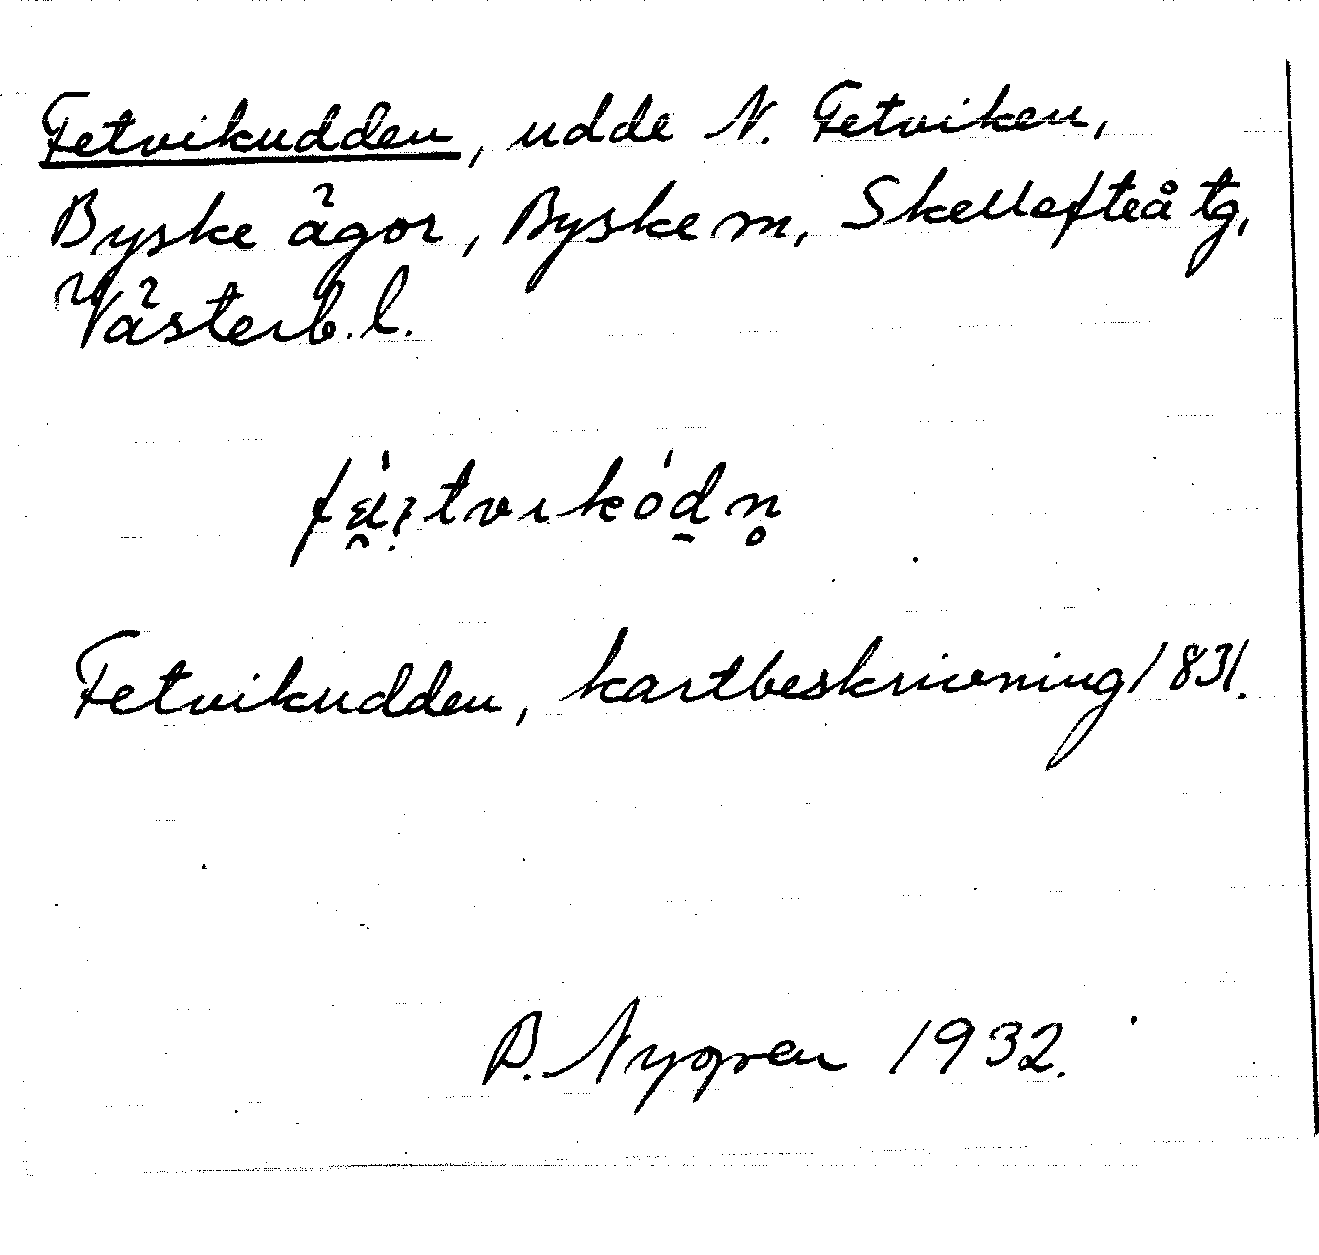 Fetvikudden, udde N. Fetviken,
Byske ägor, Byske sn, Skellefteå tg,
Västerb. l.
Fetvikudden, kartbeskrivning 1831.
B. Nygren 1932.